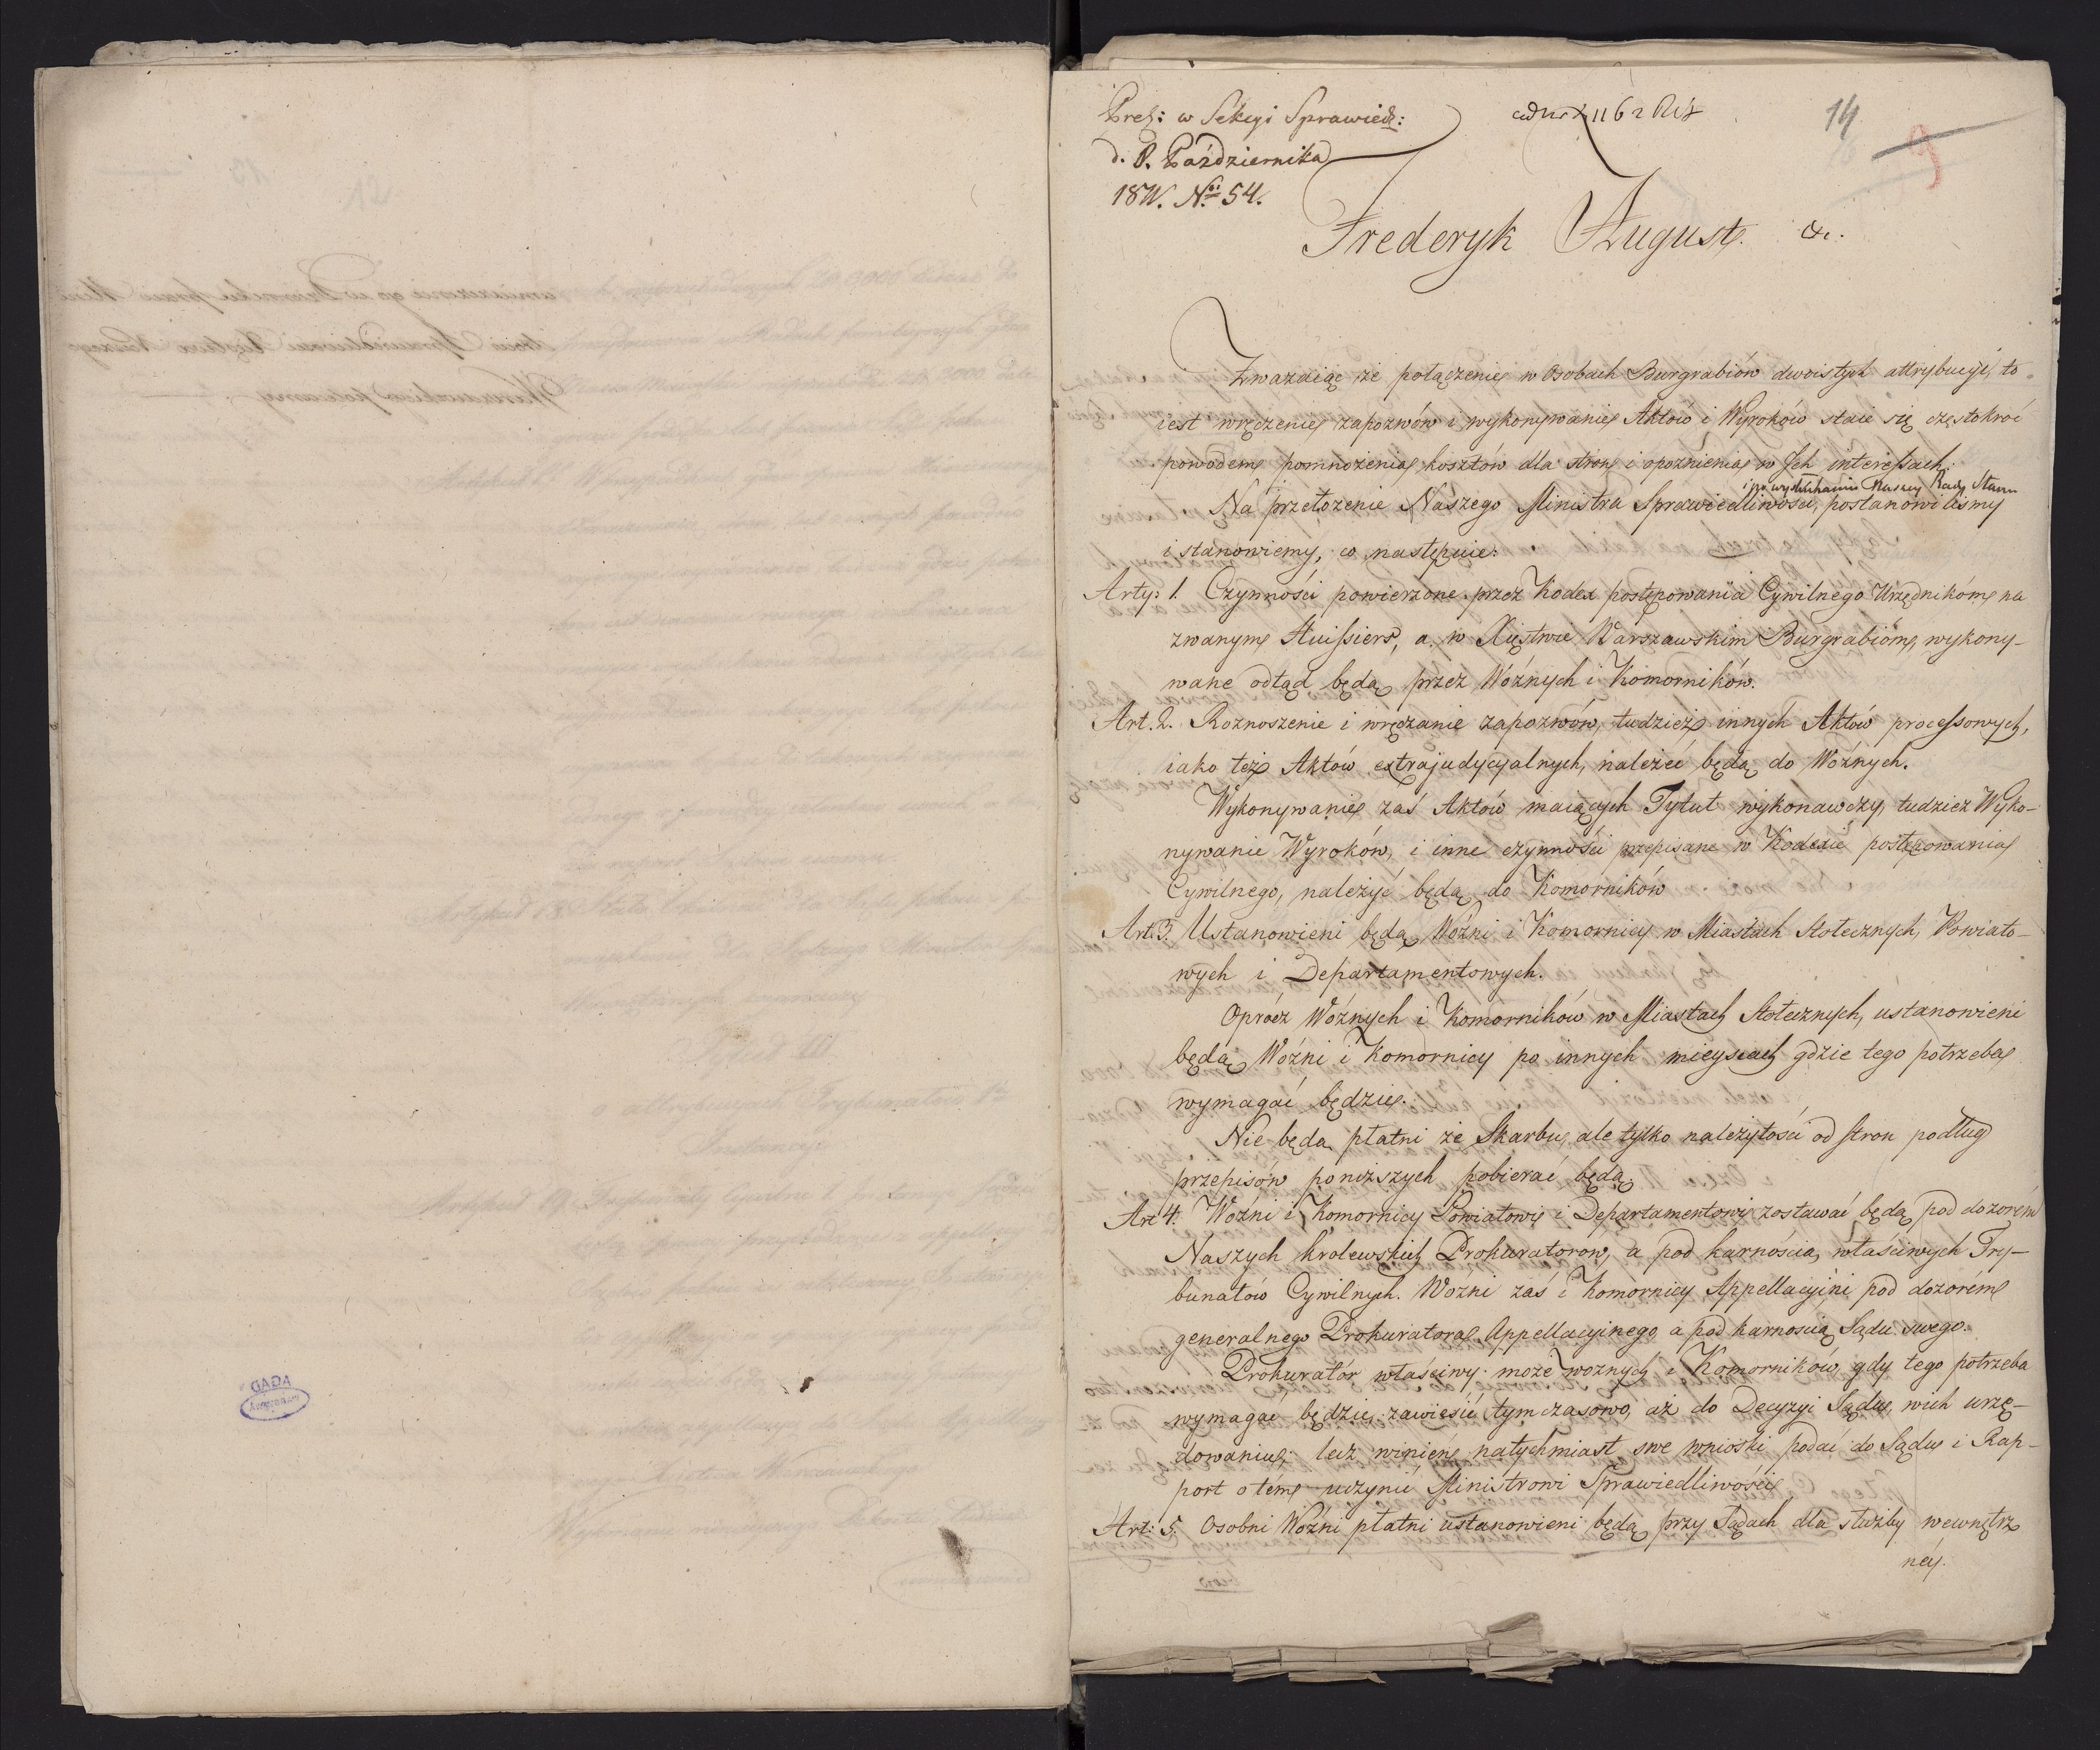 Prez: w Sekcyi Sprawied:
d. 8. Października
1811. Nr 54.
ad Nr 1162
14
Frederyk August. &c.
Zważaiąc że połączenie w Osobach Burgrabiów dwoistych attrybucyi, to
iest wręczenie zapozwów i wykonywanie Aktów i Wyroków staie się częstokroć
powodem pomnożenia kosztów dla stron i opoźnienia w Jch interessach.
i po wysłuchaniu Naszey Rady Stanu
Na przełożenie Naszego Ministra Sprawiedliwości, postanowiliśmy
i stanowiemy, co następuie:
Arty: 1. Czynności powierzone przez Kodex postępowania Cywilnego Urzędnikom na
zwanym Huissiers, a w Xięstwie Warszawskim Burgrabiom, wykony-
wane odtąd będą przez Woźnych i Komorników.
Art. 2. Roznoszenie i wręczanie zapozwów, tudzież innych Aktów processowych,
iako też Aktów extrajudycyalnych, należeć będą do Woźnych.
Wykonywanie zaś Aktów maiących Tytuł wykonawczy, tudzież Wyko-
nywanie Wyroków, i inne czynności przepisane w Kodexie postępowania
Cywilnego, należyć będą do Komorników
Art. 3. Ustanowieni będą Woźni i Komornicy w Miastach Stołecznych, Powiato-
wych i Departamentowych.
Oprócz Woźnych i Komorników w Miastach Stołecznych, ustanowieni
będą Woźni i Komornicy po innych mieyscach gdzie tego potrzeba
wymagać będzie.
Nie będą płatni ze Skarbu, ale tylko należytości od stron podług
przepisów poniższych pobierać będą.
Art 4. Woźni i Komornicy Powiatowi i Departamentowi zostawać będą pod dozorem
Naszych królewskich Prokuratorow, a pod karnością właściwych Try-
bunałów Cywilnych. Woźni zaś i Komornicy Appellacyini pod dozorem
generalnego Prokuratora Appellacyinego, a pod karnoscią Sądu swego.
Prokurator właściwy może woznych i Komorników, gdy tego potrzeba
wymagać będzie, zawiesić tymczasowo, aż do Decyzyi Sądu, wich urzę-
dowaniu; lecz winien natychmiast swe wnioski podać do Sądu i Rap-
port o tém uczynić Ministrowi Sprawiedliwości
Art: 5. Osobni Woźni płatni ustanowieni będą przy Sądach dla służby wewnętrz
néy.